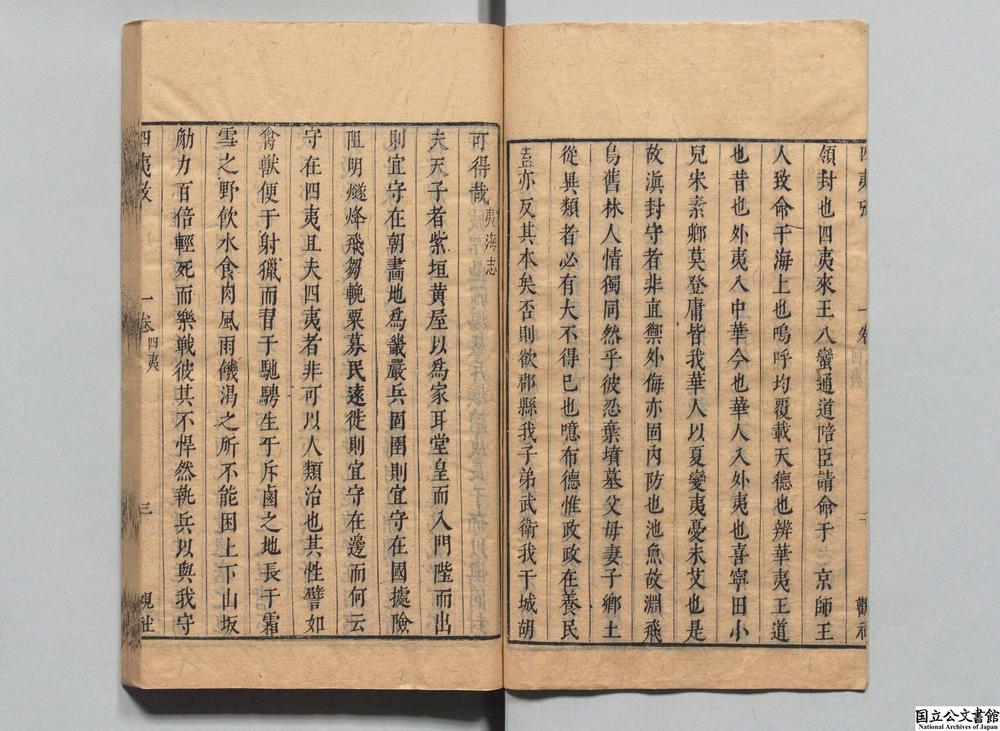 領封也四夷來王八蠻通道陪臣請命于 京師王
人致命于海上也嗚呼均覆載天德也辨華夷王道
也昔也外夷入中華今也華人入外夷也喜寧田小
兒宋素卿莫登庸皆我華人以夏變夷憂未艾也是
故滇封守者非直禦外侮亦固內防也池魚故淵飛
鳥舊林人情獨同然乎彼忍棄墳墓父母妻子鄉土
從異類者必有大不得已也噫布德惟政政在養民
盍亦反其本矣否則欲郡縣我子弟武衛我干城胡
可得哉 夷海志
夫天子者紫垣黄屋以爲家耳堂皇而入門陛而出
則宜守在朝畵地爲畿嚴兵固圉則宜守在國據險
阻明燧烽飛芻輓粟募民遠徙則宜守在邊而何云
守在四夷且夫四夷者非可以人類治也其性譬如
禽獸便于射獵而習于馳騁生于斥鹵之地長于霜
雪之野飲水食肉風雨饑渴之所不能困上下山坂
觔力百倍輕死而樂戰彼其不悍然執兵以與我守
四夷攷 一卷 四夷 三